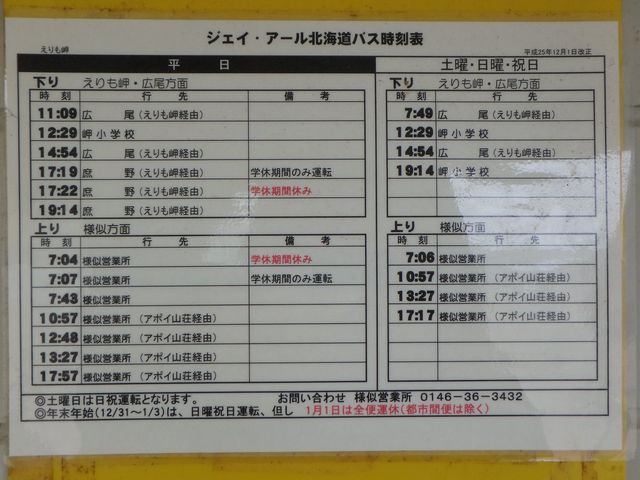 ジェイ・アール北海道バス時刻表
えりも岬
平成25年12月1日改正
平 日
下り えりも岬・広尾方面
時 刻 行 先 備 考
11:09 広 尾(えりも岬経由)
12:29 岬小学校
14:54 広 尾(えりも岬経由)
17:19 庶 野(えりも岬経由) 学休期間のみ運転
17:22 庶 野(えりも岬経由) 学休期間休み
19:14 庶 野(えりも岬経由)
上り 様似方面
時 刻 行 先 備 考
7:04 様似営業所 学休期間休み
7:07 様似営業所 学休期間のみ運転
7:43 様似営業所
10:57 様似営業所 (アポイ山荘経由)
12:48 様似営業所 (アポイ山荘経由)
13:27 様似営業所 (アポイ山荘経由)
17:57 様似営業所 (アポイ山荘経由)
土曜・日曜・祝日
下り えりも岬・広尾方面
時 刻 行 先
7:49 広 尾(えりも岬経由)
12:29 岬小学校
14:54 広 尾(えりも岬経由)
19:14 岬小学校
上り 様似方面
時 刻 行 先
7:06 様似営業所
10:57 様似営業所 (アポイ山荘経由)
13:27 様似営業所 (アポイ山荘経由)
17:17 様似営業所 (アポイ山荘経由)
◎土曜日は日祝運転となります。 お問い合わせ 様似営業所 0146-36-3432
◎年末年始(12/31~1/3)は、日曜祝日運転、但し 1月1日は全便運休(都市間便は除く)